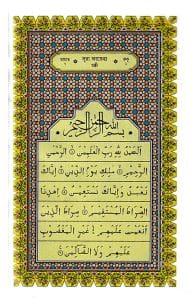 بِسْمِ اللهِ الرَّحْمٰنِ الرَّحِيْمِ
اَلْحَمْدُ لِلّٰهِ رَبِّ الْعٰلَمِيْنَ ۝ الرَّحْمٰنِ
الرَّحِيْمِ ۝ مٰلِكِ يَوْمِ الدِّيْنِ ۝ اِيَّاكَ
نَعْبُدُ وَاِيَّاكَ نَسْتَعِيْنُ ۝ اِهْدِنَا
الصِّرَاطَ الْمُسْتَقِيْمَ ۝ صِرَاطَ الَّذِيْنَ
اَنْعَمْتَ عَلَيْهِمْ ۝ غَيْرِ الْمَغْضُوْبِ
عَلَيْهِمْ وَلَا الضَّآلِّيْنَ ۝